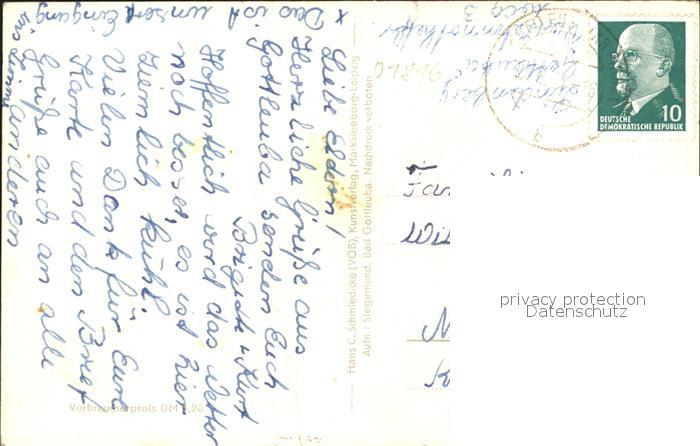 x Das ist unser Eingang
ins Zimmer
Liebe Eltern!
Herzliche Grüße aus
Gottleuba senden Euch
Brigitte + Kurt
Hoffentlich wird das Wetter
noch besser, es ist hier
ziemlich kühl.
Vielen Dank für Eure
Karte und den Brief
Grüße auch an alle
anderen
Verbraucherpreis DM 0,20
Hans C. Schmiedicke (VOB), Kunstverlag, Markkleeberg-Leipzig
Aufn.: Siegemund, Bad Gottleuba. Nachdruck verboten
01816
Gottleuba
10
DEUTSCHE
DEMOKRATISCHE REPUBLIK
privacy protection
Datenschutz